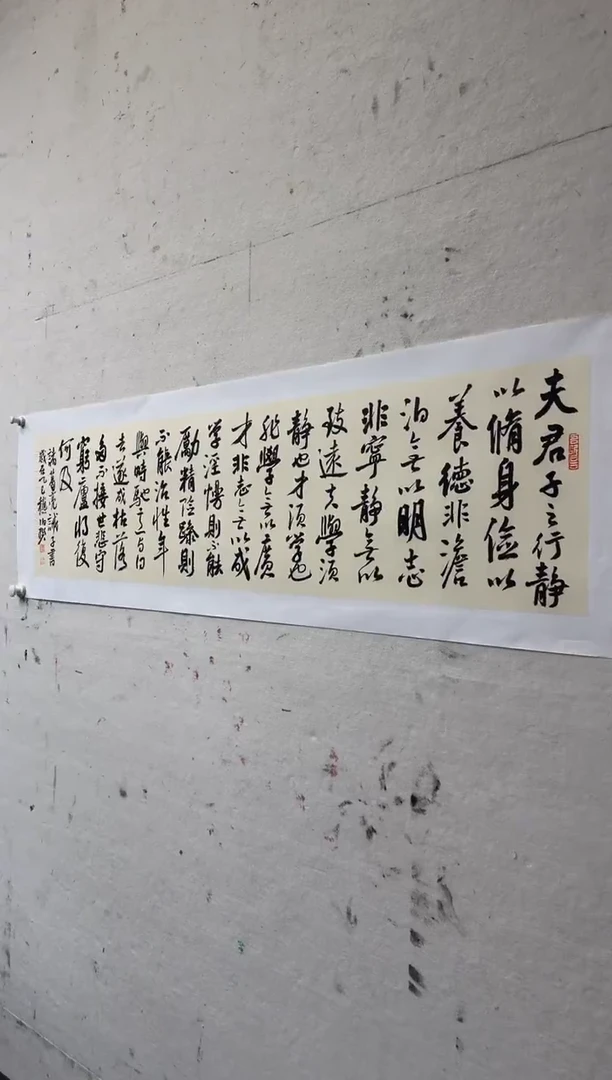 夫君子之行静
以脩身俭以
養德非澹
泊無以明志
非寧静無以
致遠夫學須
静也才須学也
非學無以廣
才非志無以成
学淫慢則不能
勵精险躁則
不能治性年
與時馳意与日
去遂成枯落
多不接世悲守
窮廬将復
何及
諸葛亮誡子書
歲在乙巳